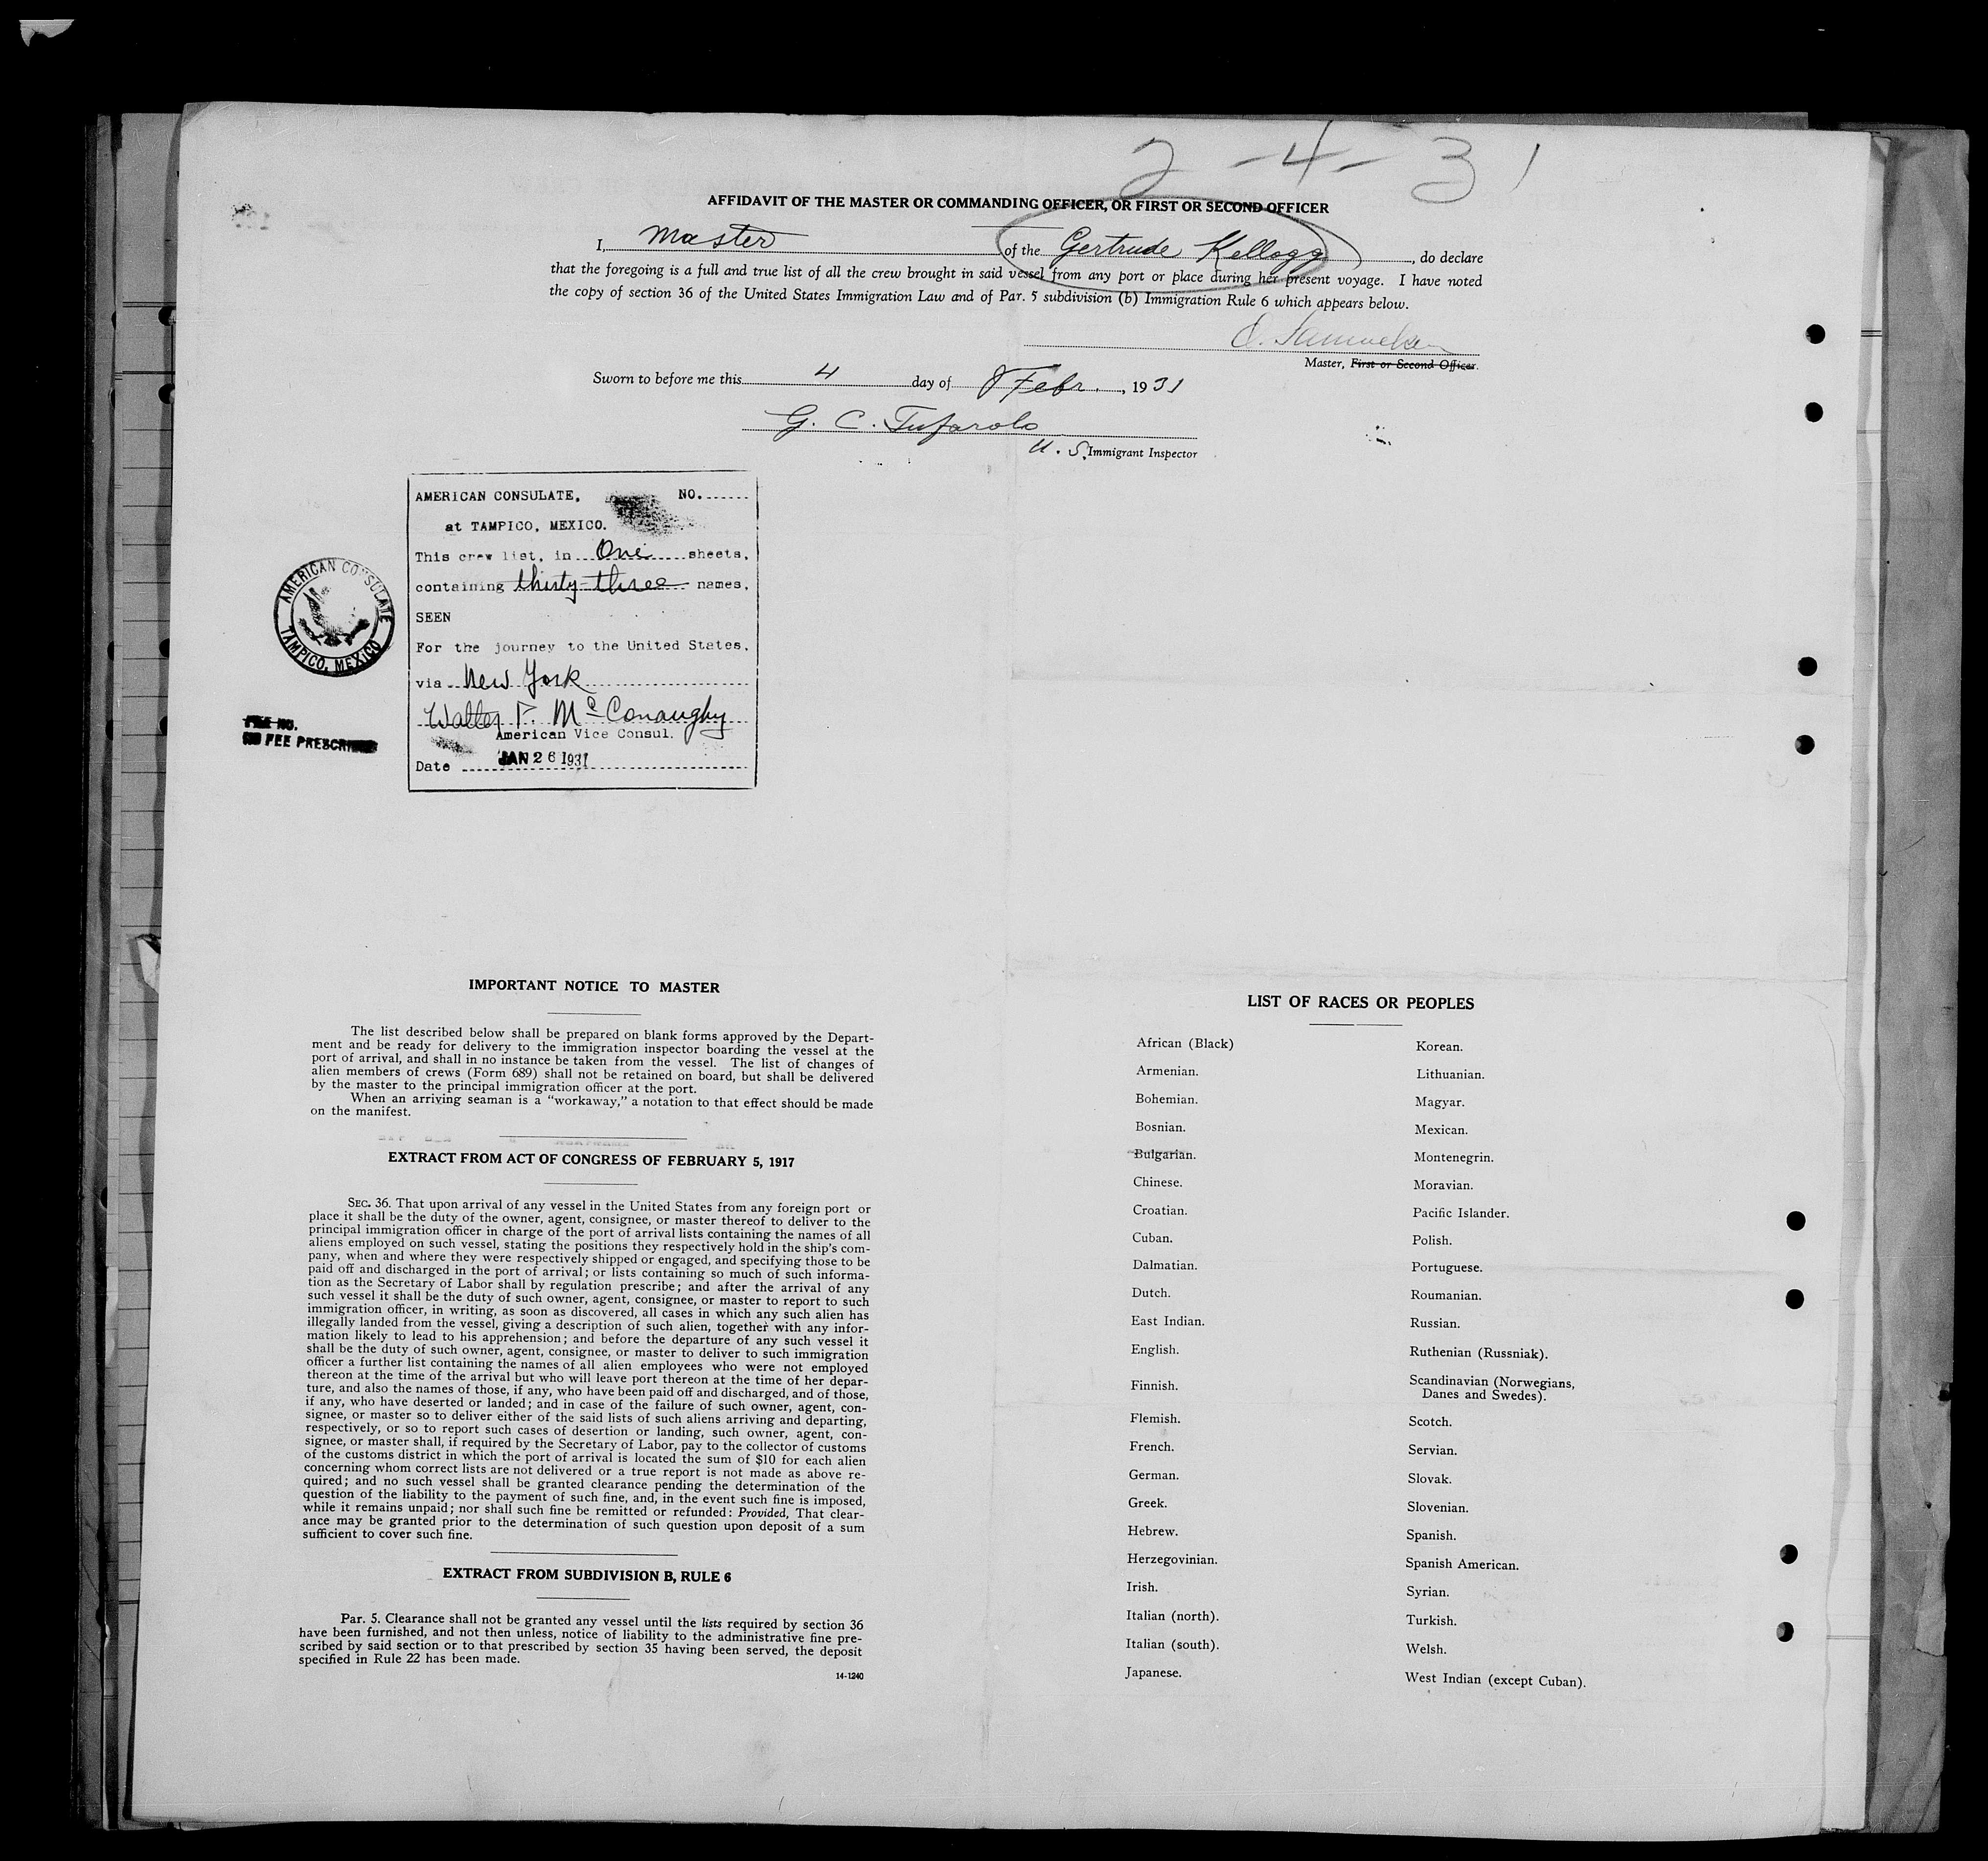 2-4-31
AFFIDAVIT OF THE MASTER OR COMMANDING OFFICER, OR FIRST OR SECOND OFFICER
I, Master of the Gertrude Kellogg, do declare
that the foregoing is a full and true list of all the crew brought in said vessel from any port or place during her present voyage. I have noted
the copy of section 36 of the United States Immigration Law and of Par. 5 subdivision (b) Immigration Rule 6 which appears below.
Master, First or Second Officer.
Sworn to before me this 4 day of Febr., 1931
G. C. Tufarolo
U. S. Immigrant Inspector
AMERICAN CONSULATE, NO.
at TAMPICO, MEXICO.
This crew list, in One sheets,
containing thirty-three names,
SEEN
For the journey to the United States,
via New York
Walter P. McConaughy
American Vice Consul.
Date JAN 26 1931
AMERICAN CONSULATE
TAMPICO, MEXICO
FEE NO.
NO FEE PRESCRIBED
IMPORTANT NOTICE TO MASTER
The list described below shall be prepared on blank forms approved by the Depart-
ment and be ready for delivery to the immigration inspector boarding the vessel at the
port of arrival, and shall in no instance be taken from the vessel. The list of changes of
alien members of crews (Form 689) shall not be retained on board, but shall be delivered
by the master to the principal immigration officer at the port.
When an arriving seaman is a "workaway," a notation to that effect should be made
on the manifest.
EXTRACT FROM ACT OF CONGRESS OF FEBRUARY 5, 1917
SEC. 36. That upon arrival of any vessel in the United States from any foreign port or
place it shall be the duty of the owner, agent, consignee, or master thereof to deliver to the
principal immigration officer in charge of the port of arrival lists containing the names of all
aliens employed on such vessel, stating the positions they respectively hold in the ship's com-
pany, when and where they were respectively shipped or engaged, and specifying those to be
paid off and discharged in the port of arrival; or lists containing so much of such informa-
tion as the Secretary of Labor shall by regulation prescribe; and after the arrival of any
such vessel it shall be the duty of such owner, agent, consignee, or master to report to such
immigration officer, in writing, as soon as discovered, all cases in which any such alien has
illegally landed from the vessel, giving a description of such alien, together with any infor-
mation likely to lead to his apprehension; and before the departure of any such vessel it
shall be the duty of such owner, agent, consignee, or master to deliver to such immigration
officer a further list containing the names of all alien employees who were not employed
thereon at the time of the arrival but who will leave port thereon at the time of her depar-
ture, and also the names of those, if any, who have been paid off and discharged, and of those,
if any, who have deserted or landed; and in case of the failure of such owner, agent, con-
signee, or master so to deliver either of the said lists of such aliens arriving and departing,
respectively, or so to report such cases of desertion or landing, such owner, agent, con-
signee, or master shall, if required by the Secretary of Labor, pay to the collector of customs
of the customs district in which the port of arrival is located the sum of $10 for each alien
concerning whom correct lists are not delivered or a true report is not made as above re-
quired; and no such vessel shall be granted clearance pending the determination of the
question of the liability to the payment of such fine, and, in the event such fine is imposed,
while it remains unpaid; nor shall such fine be remitted or refunded: Provided, That clear-
ance may be granted prior to the determination of such question upon deposit of a sum
sufficient to cover such fine.
EXTRACT FROM SUBDIVISION B, RULE 6
Par. 5. Clearance shall not be granted any vessel until the lists required by section 36
have been furnished, and not then unless, notice of liability to the administrative fine pre-
scribed by said section or to that prescribed by section 35 having been served, the deposit
specified in Rule 22 has been made.
14-1240
LIST OF RACES OR PEOPLES
African (Black)
Armenian.
Bohemian.
Bosnian.
Bulgarian.
Chinese.
Croatian.
Cuban.
Dalmatian.
Dutch.
East Indian.
English.
Finnish.
Flemish.
French.
German.
Greek.
Hebrew.
Herzegovinian.
Irish.
Italian (north).
Italian (south).
Japanese.
Korean.
Lithuanian.
Magyar.
Mexican.
Montenegrin.
Moravian.
Pacific Islander.
Polish.
Portuguese.
Roumanian.
Russian.
Ruthenian (Russniak).
Scandinavian (Norwegians,
Danes and Swedes).
Scotch.
Servian.
Slovak.
Slovenian.
Spanish.
Spanish American.
Syrian.
Turkish.
Welsh.
West Indian (except Cuban).